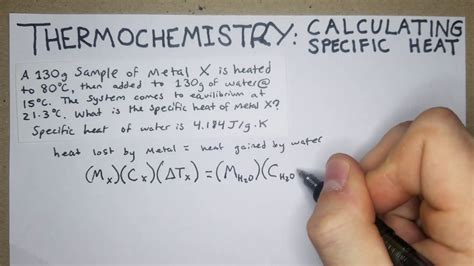 THERMOCHEMISTRY: CALCULATING
SPECIFIC HEAT
A 130g Sample of Metal X is heated
to 80°C, then added to 130g of water@
15°C. The System comes to equilibrium at
21.3°C. What is the specific heat of Metal X?
Specific heat of water is 4.184 J/g·K
heat lost by Metal = heat gained by water
(Mₓ)(Cₓ)(ΔTₓ) = (M_H₂O)(C_H₂O